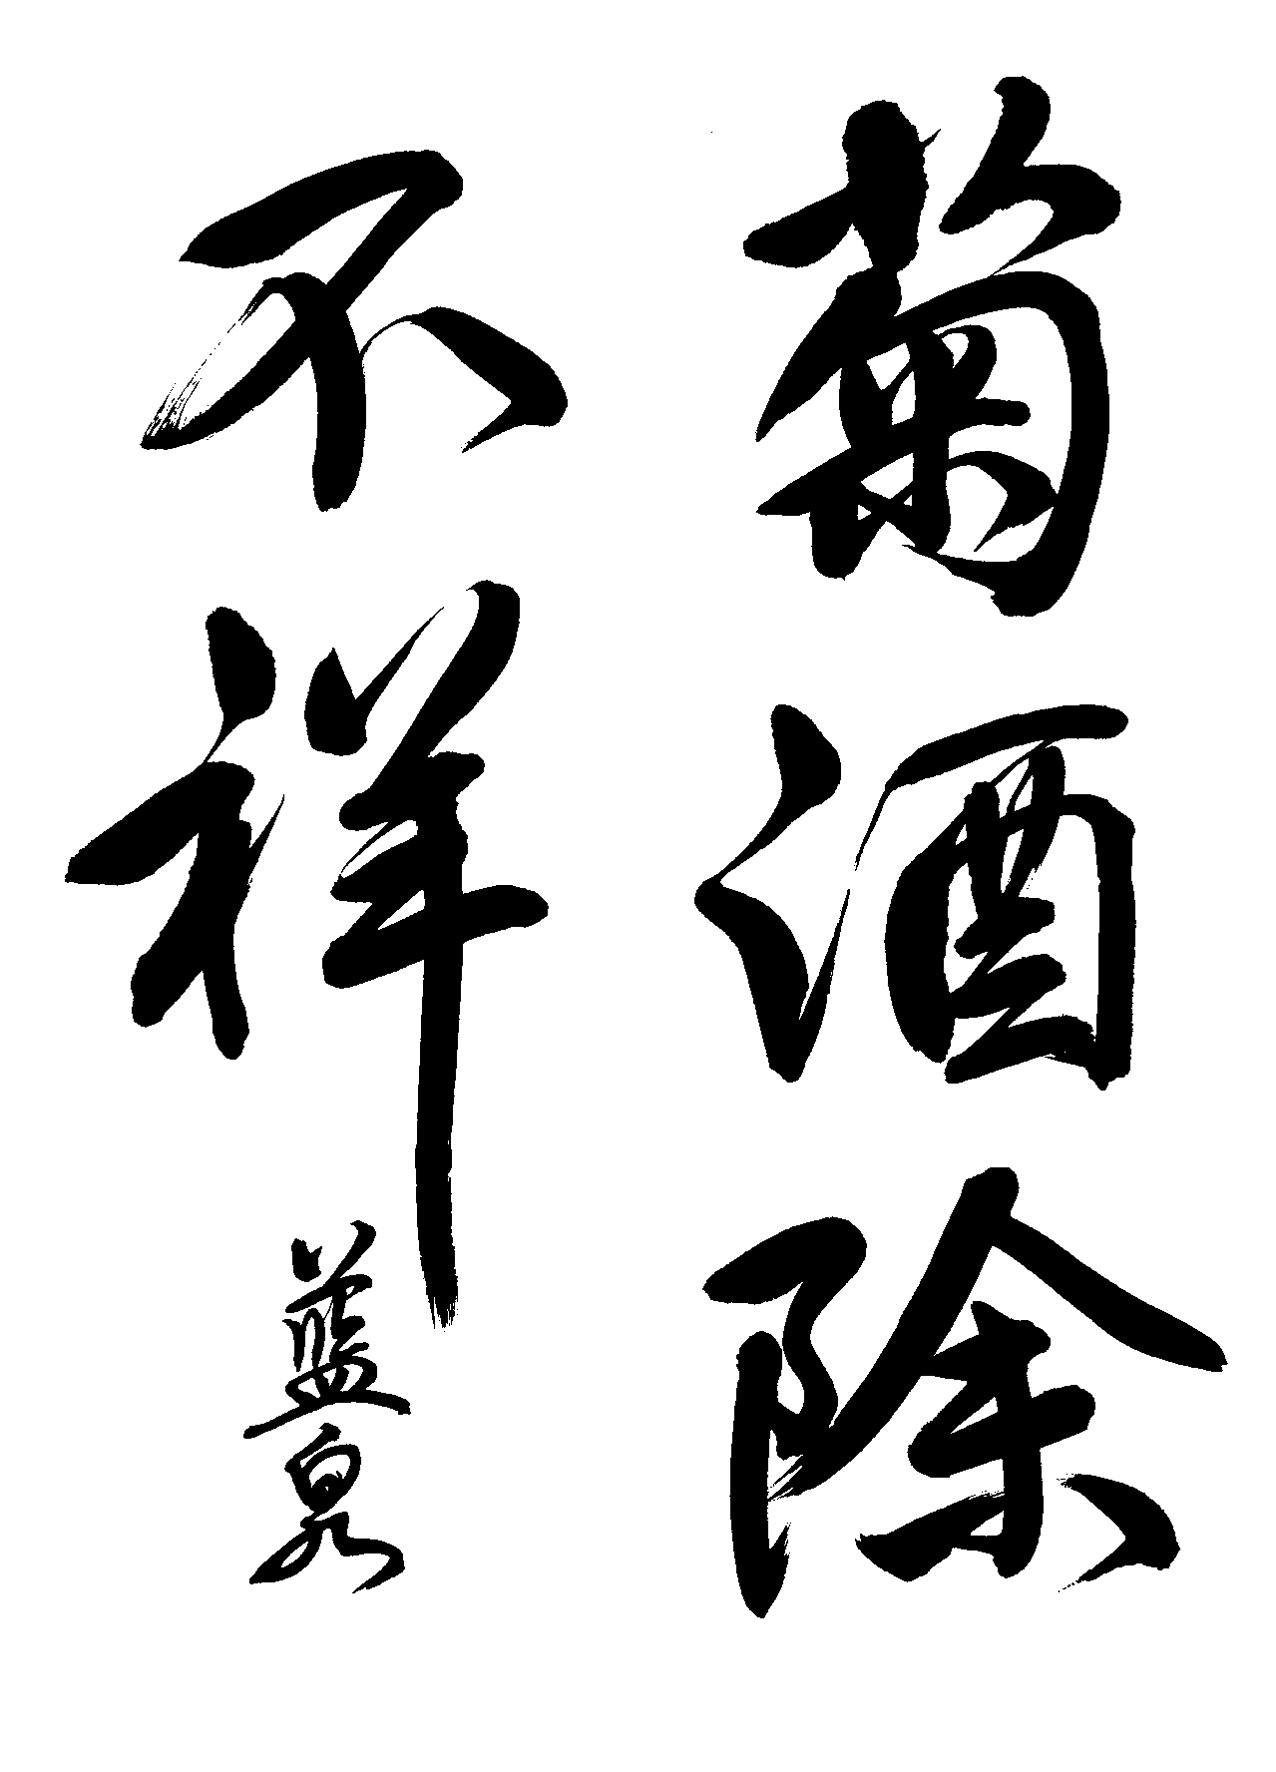 菊酒除
不祥
蓝泉